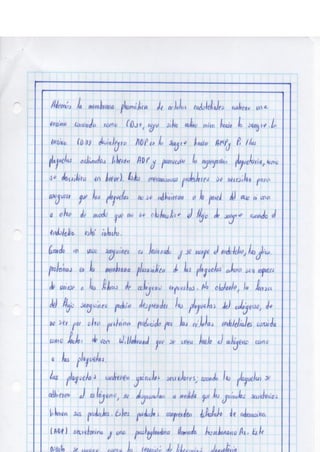 Además la membrana plasmática de células endoteliales contiene una
enzima conocida como CD39, cuyo sitio activo mira hacia la sangre. La
enzima CD39 desintegra ADP en la sangre hasta AMP y Pi (las
plaquetas activadas liberan ADP y promueven la agregación plaquetaria, como
se describirá en breve). Estos mecanismos se necesitan para
asegurar que las plaquetas no se adhieran a la pared del vaso
a otro de modo que no se obstaculice el flujo de sangre cuando el
endotelio está intacto.
Cuando un vaso sanguíneo es lesionado y se rompe el endotelio, las
proteínas en la membrana plasmática de las plaquetas ahora son capaces
de unirse a las fibras de colágeno expuestas. No obstante, la fuerza
del flujo sanguíneo podría desprender las plaquetas del colágeno, de
no ser por otra proteína producida por las células endoteliales conocida
como factor de von Willebrand que se une tanto al colágeno como
a las plaquetas.
Las plaquetas contienen gránulos secretores; cuando las plaquetas se
adhieren al colágeno, se desgranulan a medida que los gránulos secretorios
liberan sus productos. Estos productos comprenden difosfato de adenosina
(ADP) serotonina y una prostaglandina llamada tromboxano A2. Este